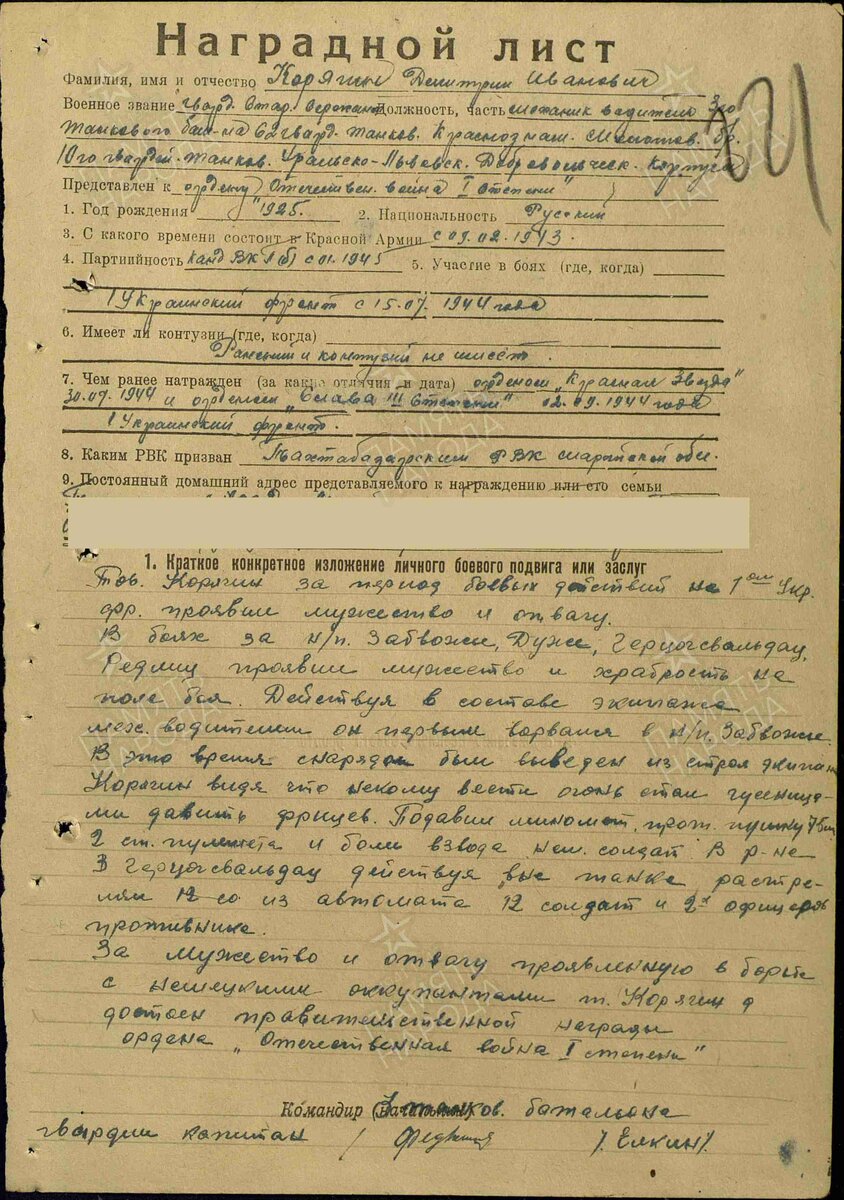 Наградной лист
Фамилия, имя и отчество Корягин Дмитрий Иванович
Военное звание гвард. Стар. Сержант Должность, часть механик водитель 3го
Танкового бат-на 62 гвард. танков. Краснознам. бр.
10го гвардей. танков. Уральско-Львовск. Добровольческ. Корпуса
Представлен к ордену "Отечествен. война I степени"
1. Год рождения 1925. 2. Национальность Русский
3. С какого времени состоит в Красной Армии с 09.02.1943.
4. Партийность канд ВКП(б) с 01.1945 5. Участие в боях (где, когда)
1 Украинский фронт с 15.07. 1944 года
6. Имеет ли контузии (где, когда)
Ранений и контузий не имеет.
7. Чем ранее награжден (за какие отличия и дата) орденом „Красная Звезда"
30.07.1944 и орденом „Слава III Степени" 02.09.1944 года
1 Украинский фронт.
8. Каким РВК призван РВК Марыйской обл.
9. Постоянный домашний адрес представляемого к награждению или его семьи
1. Краткое конкретное изложение личного боевого подвига или заслуг
Тов. Корягин за период боевых действий на 1ом Укр.
фр. проявил мужество и отвагу.
В боях за н/п. Забвожи, Дуже, Герцогсвальдау,
Редлиц проявил мужество и храбрость на
поле боя. Действуя в составе экипажа
мех. водителем он первым ворвался в н/п. Забвожи.
В это время снарядом был выведен из строя экипаж
Корягин видя что некому вести огонь стал гусеница-
ми давить фрицев. Подавил миномет, прот. пушку
2 ст. пулемета и боле взвода нем. солдат. В р-не
Герцогсвальдау действуя вне танка, расстре-
лял из автомата 12 солдат и 2х офицеров
противника.
За мужество и отвагу проявленную в борьбе
с немецкими оккупантами т. Корягин
достоен правительственной награды
ордена „Отечественная война I степени"
Командир 3 танков. батальона
гвардии капитан / /Елкин/.